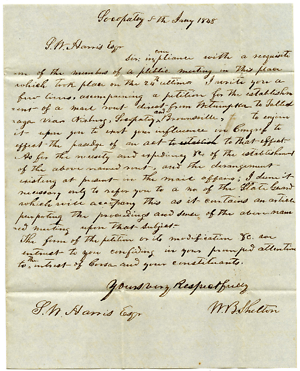 Socopatoy 5th Jany 1848
S. W. Harris Esqr
Sir, in compliance with a requisite
on of the members of a public meeting in this place
which took place on the 24th ultimo. I write you a
few lines, accompanying a petition for the establish
ment of a mail rout direct from Wetumpka to Tallad
ega via Nixburg, Socopatoy and Brownsville, to enjoin
it upon you to exert your influence in Congress to
effect the passage of an act to establish to that effect
As for the necessity and expediency &c of the establishment
of the above named rout and the derangement
existing at present in the mail affairs, I deem it
necessary only to refer you to a no of the State Guard
which will accompany this as it contains an article
purporting the proceedings and sense of the above nam
ed meeting upon that subject
The form of the petition or its modification &c. we
entrust to you confiding in your prompt attention
to the interest of Coosa and your constituents.
Yours very Respectfully
S. W. Harris Esqr W. B. Shelton